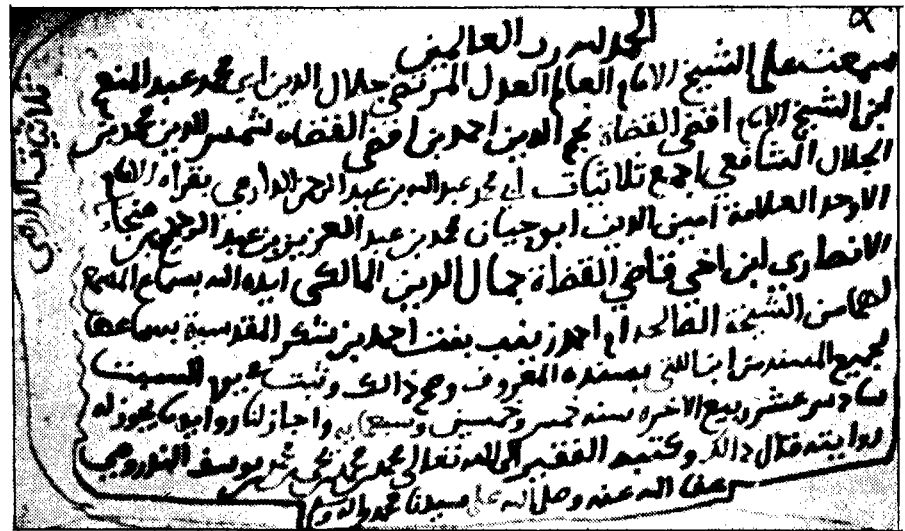 الحمد لله رب العالمين
سمعت على الشيخ الإمام العالم العدل المرتضى جلال الدين أبي محمد عبد المنعم
ابن الشيخ الإمام أقضى القضاة نجم الدين أحمد بن أقضى القضاة شمس الدين محمد بن
الجلال الشافعي أجمع ثلاثيات أبي محمد عبد الله بن عبد الرحمن الدارمي بقراءة الإمام
الأوحد العلامة أمين الدين أبو حيان محمد بن عبد العزيز بن عبد الرحيم بن
الأنصاري ابن أخي قاضي القضاة جمال الدين المالكي أيده الله بسماع المسمع
لها من الشيخة الصالحة أم أحمد زينب بنت أحمد بن شكر المقدسية بسماعها
لجميع المسند من ابن اللتي بسنده المعروف وصح ذالك وثبت عشية السبت
سادس عشر ربيع الآخرة سنة خمس وخمسين وسبعماية وأجاز لنا رواية ما يجوز له
روايته قال ذالك وكتبه الفقير إلى الله تعالى محمد بن محمد بن يحيى يوسف الندرومي
عفا الله عنه وصلى الله على سيدنا محمد وآله وسلم
ثلاثيات الدارمي